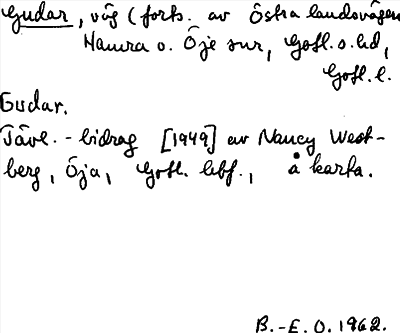 Gudar, väg (forts. av Östra landsvägen
Hamra o. Öje snr, Gotl. s. hd,
Gotl. l.
Gudar.
Tävl.-bidrag [1949] av Nancy West-
berg, Öja, Gotl. lbf., å karta.
B.-E. O. 1962.